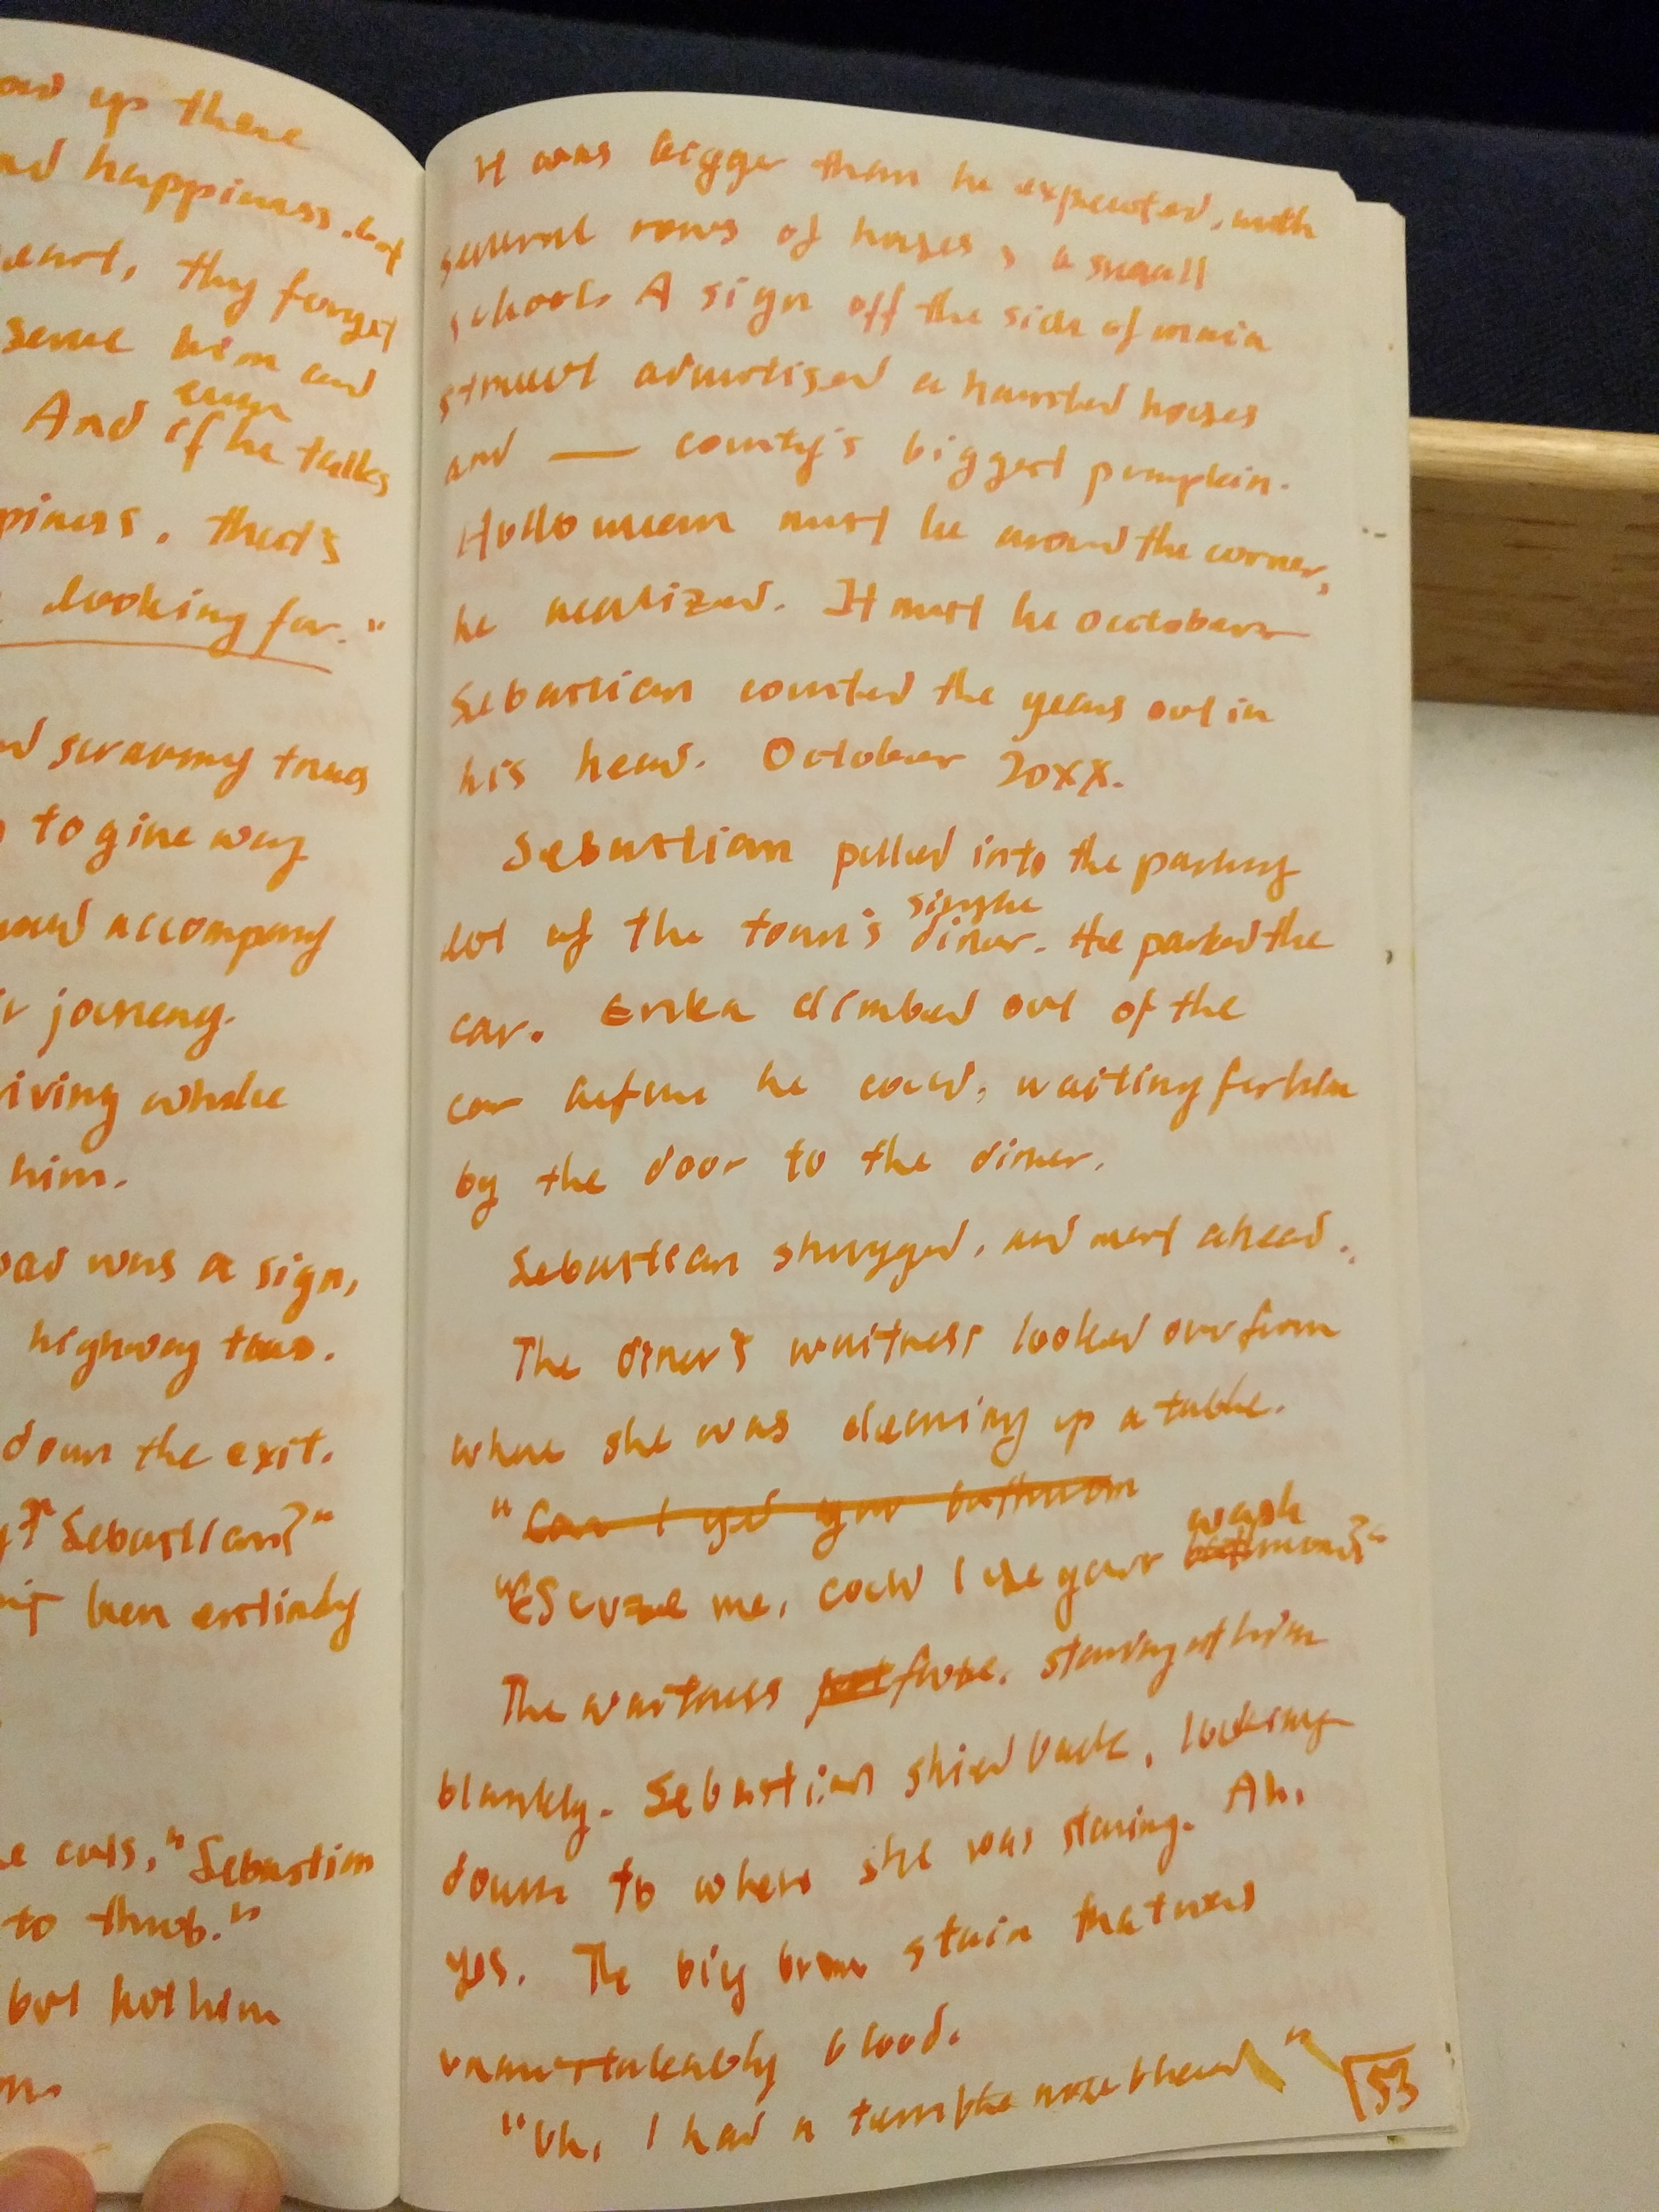 up there
nd happiness. Let
, they forget
serve him and
even
And if he talks
piness. that's
looking for."
d scrawny trees
to give way
accompany
journey.
iving while
him.
oad was a sign,
highway town.
down the exit.
Sebastian?"
been entirely
"Sebastian
to throb."
but hot him
It was bigger than he expected, with
several rows of houses & a small
school. A sign off the side of main
street advertised a haunted houses
and — county's biggest pumpkin.
Halloween must be around the corner,
he realized. It must be October
Sebastian counted the years out in
his head. October 20XX.
Sebastian pulled into the parking
single
lot of the town's diner. He parked the
car. Erika climbed out of the
car before he could, waiting for him
by the door to the diner.
Sebastian shrugged, and went ahead.
The diner's waitress looked over from
where she was cleaning up a table.
"Can I get your bathroom
wash
"Escuze me, could I use your bathroom?"
The waitress froze, staring at him
blankly. Sebastian shied back, looking
down to where she was staring. Ah,
yes. The big brown stain that was
unmistakeably blood.
"Uh, I had a terrible nose bleed"
53